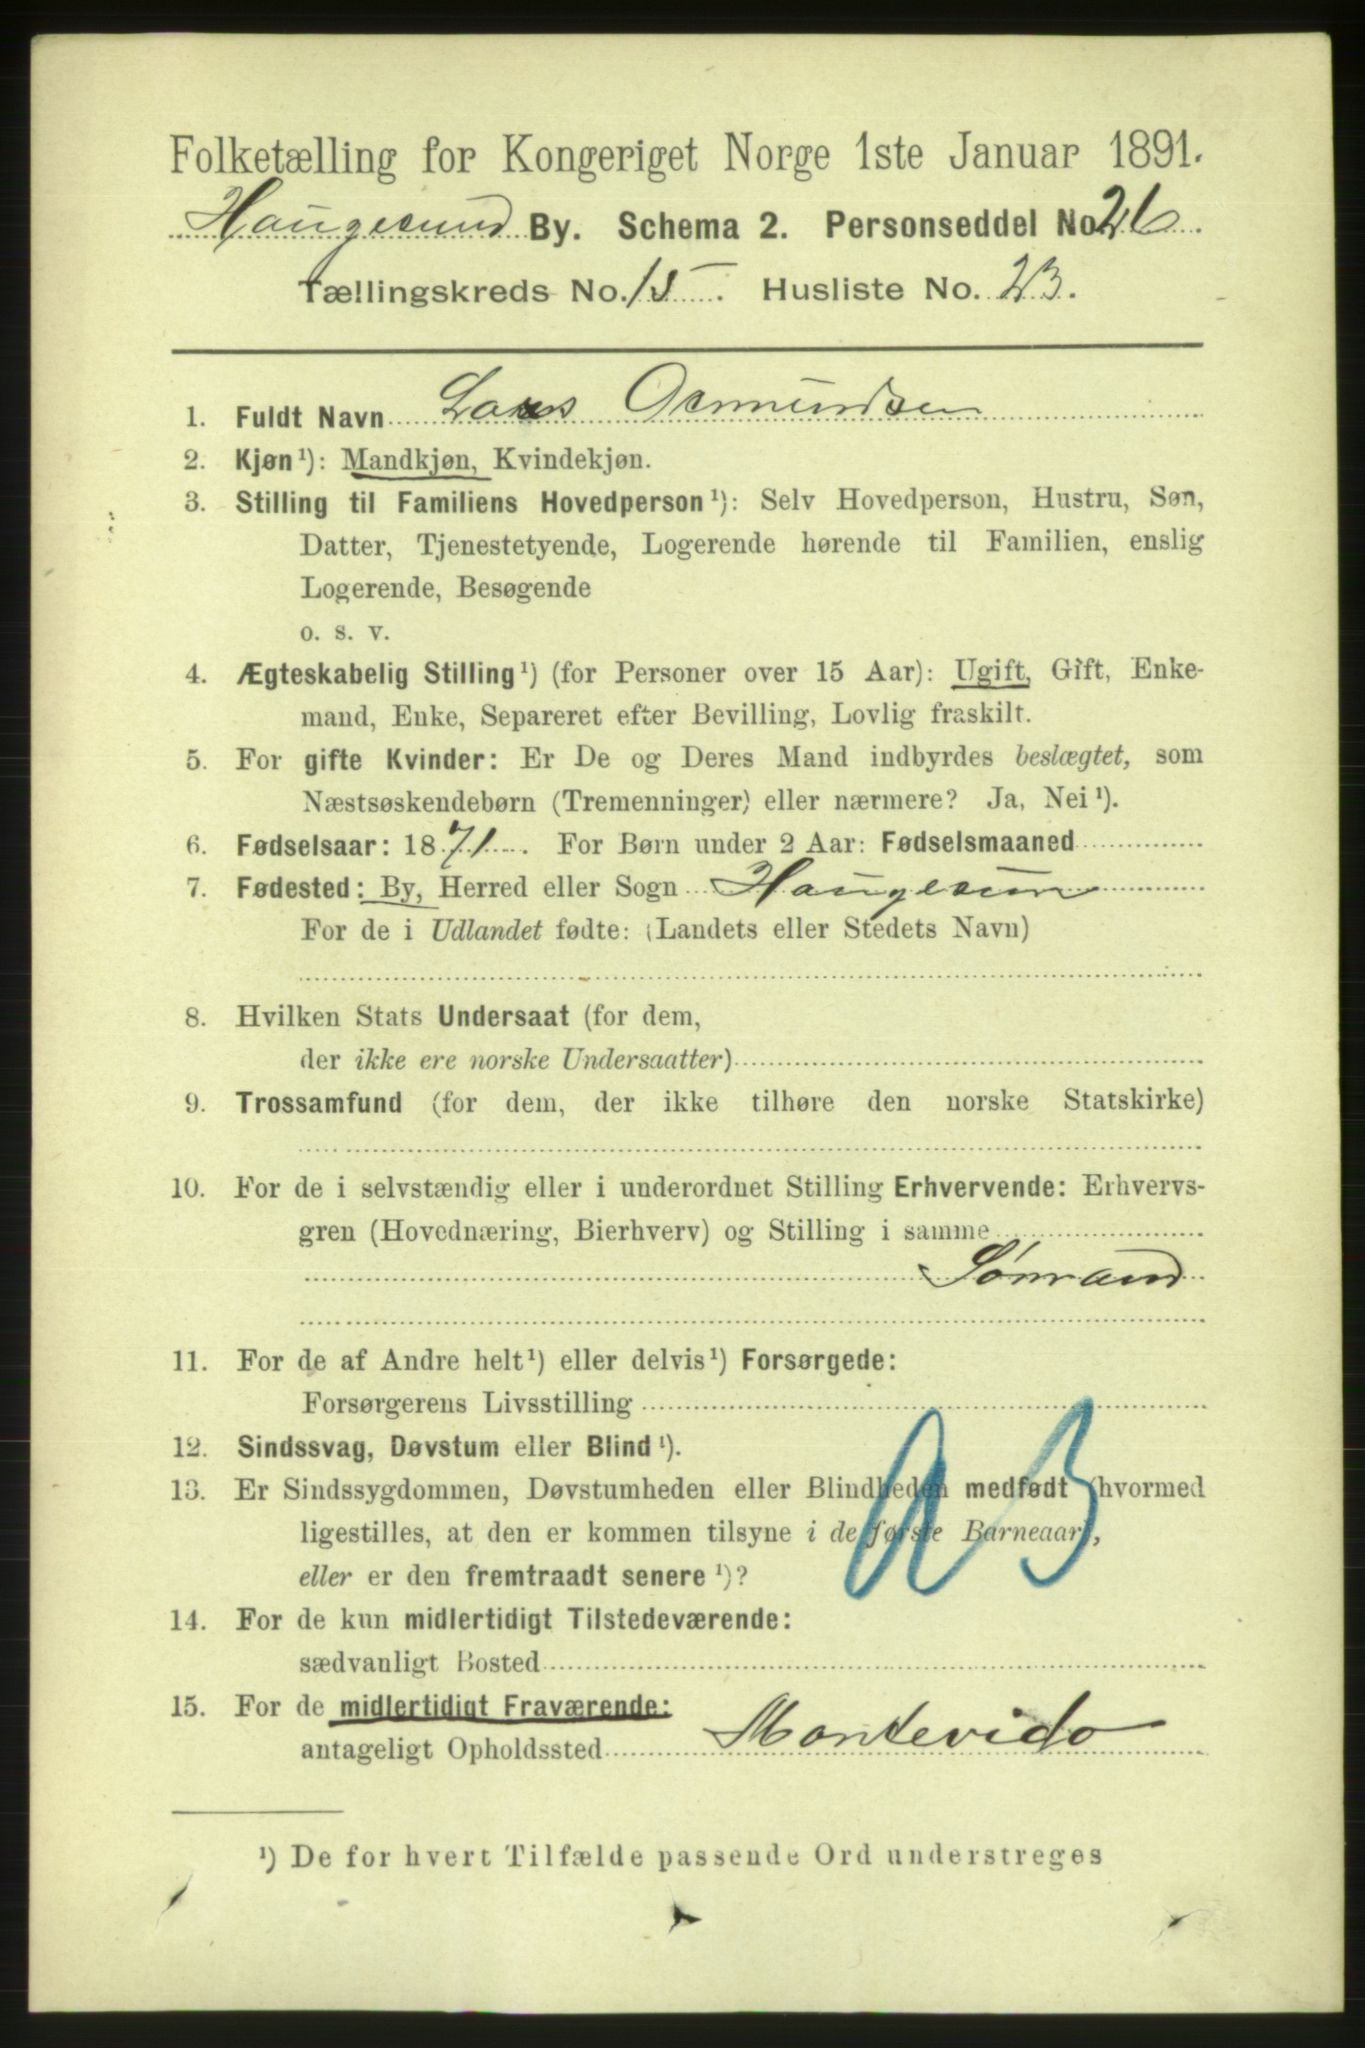 Folketælling for Kongeriget Norge 1ste Januar 1891.
Haugesund By. Schema 2. Personseddel No 26.
Tællingskreds No. 15. Husliste No. 23.
1. Fuldt Navn Lars Asmundsen
2. Kjøn ¹): Mandkjøn, Kvindekjøn.
3. Stilling til Familiens Hovedperson ¹): Selv Hovedperson, Hustru, Søn,
Datter, Tjenestetyende, Logerende hørende til Familien, enslig
Logerende, Besøgende
o. s. v.
4. Ægteskabelig Stilling ¹) (for Personer over 15 Aar): Ugift, Gift, Enke-
mand, Enke, Separeret efter Bevilling, Lovlig fraskilt.
5. For gifte Kvinder: Er De og Deres Mand indbyrdes beslægtet, som
Næstsøskendebørn (Tremenninger) eller nærmere? Ja, Nei ¹).
6. Fødselsaar: 1871. For Børn under 2 Aar: Fødselsmaaned
7. Fødested: By, Herred eller Sogn Haugesun
For de i Udlandet fødte: (Landets eller Stedets Navn)
8. Hvilken Stats Undersaat (for dem,
der ikke ere norske Undersaatter)
9. Trossamfund (for dem, der ikke tilhøre den norske Statskirke)
10. For de i selvstændig eller i underordnet Stilling Erhvervende: Erhvervs-
gren (Hovednæring, Bierhverv) og Stilling i samme
Sømand
11. For de af Andre helt ¹) eller delvis ¹) Forsørgede:
Forsørgerens Livsstilling
12. Sindssvag, Døvstum eller Blind ¹).
13. Er Sindssygdommen, Døvstumheden eller Blindheden medfødt (hvormed
ligestilles, at den er kommen tilsyne i de første Barneaar),
eller er den fremtraadt senere ¹)?
14. For de kun midlertidigt Tilstedeværende:
sædvanligt Bosted
15. For de midlertidigt Fraværende:
antageligt Opholdssted Montevido
¹) De for hvert Tilfælde passende Ord understreges